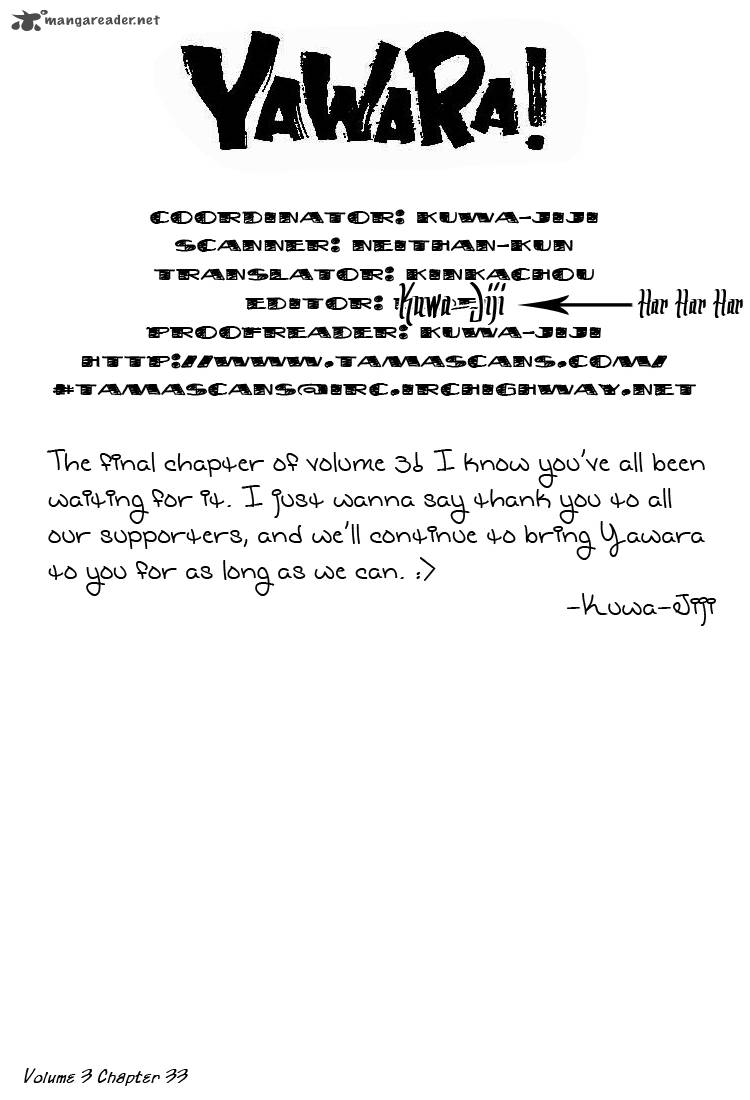 mangareader.net
YAWARA!
COORDINATOR: KUWA-JIJI
SCANNER: NEITHAN-KUN
TRANSLATOR: KINKACHOU
EDITOR: Kuwa-Jiji Har Har Har
PROOFREADER: KUWA-JIJI
HTTP://WWW.TAMASCANS.COM/
#TAMASCANS@IRC.IRCHIGHWAY.NET
The final chapter of volume 3! I know you've all been
waiting for it. I just wanna say thank you to all
our supporters, and we'll continue to bring Yawara
to you for as long as we can. :>
-Kuwa-Jiji
Volume 3 Chapter 33